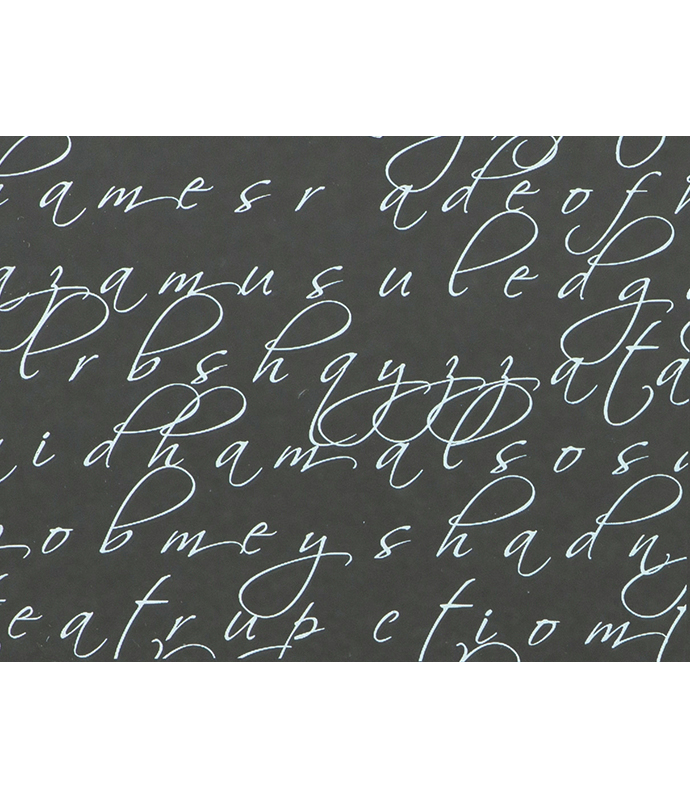 hamesr adeofh
azamus uledg
lrbshqyzzata
uidhamalsosu
obmey shadn
eatrup ctiomt